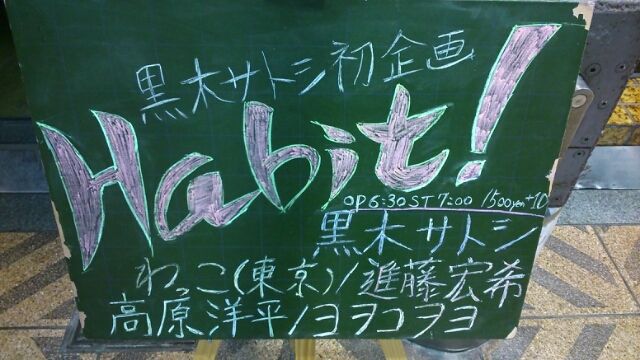 黒木サトシ初企画
Habit!
OP 6:30 ST 7:00 1500yen+1D
黒木サトシ
わっこ(東京)/進藤宏希
高原洋平/ヨヲコヲヨ